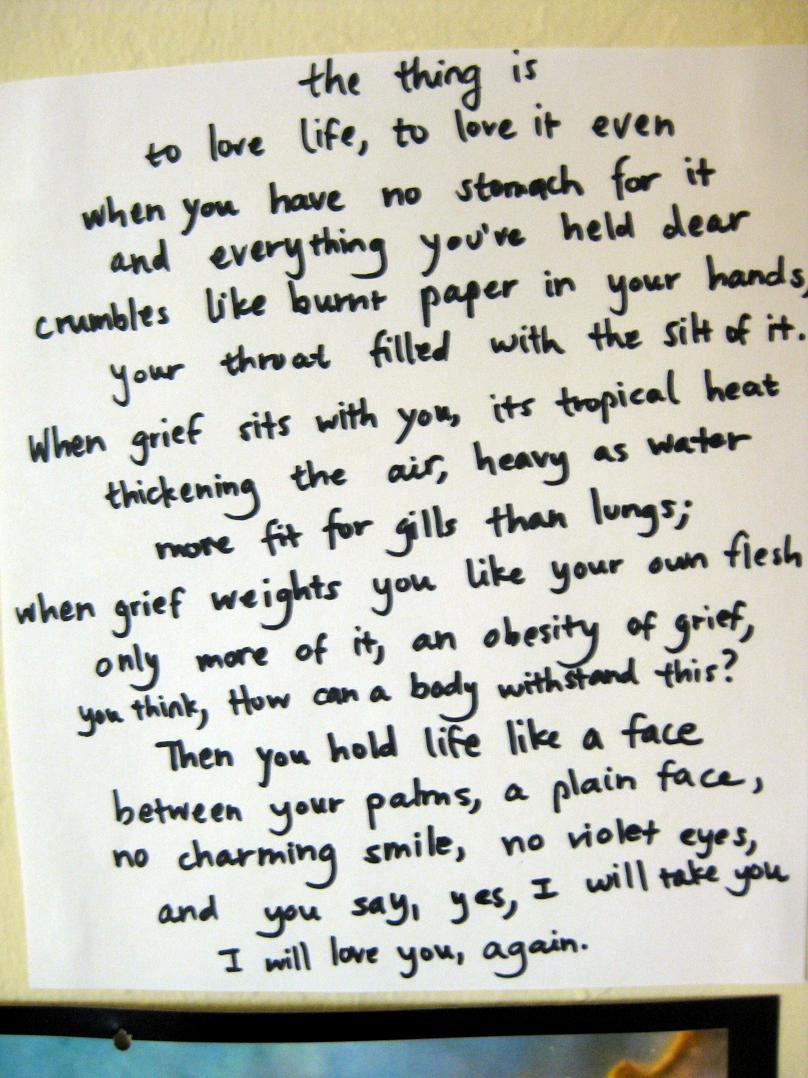 the thing is
to love life, to love it even
when you have no stomach for it
and everything you've held dear
crumbles like burnt paper in your hands,
your throat filled with the silt of it.
When grief sits with you, its tropical heat
thickening the air, heavy as water
more fit for gills than lungs;
when grief weights you like your own flesh
only more of it, an obesity of grief,
you think, How can a body withstand this?
Then you hold life like a face
between your palms, a plain face,
no charming smile, no violet eyes,
and you say, yes, I will take you
I will love you, again.